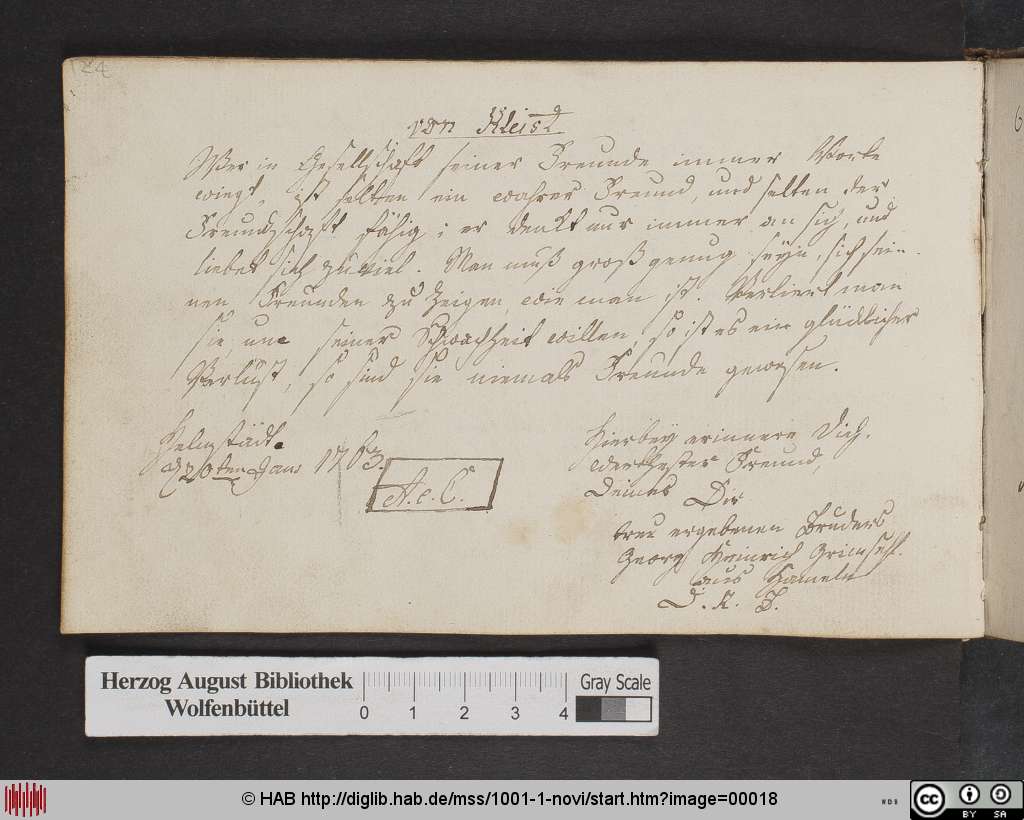 24
von Kleist
Wer in Gesellschaft seiner Freunde immer Worte
wiegt, ist selten ein wahrer Freund, und selten der
Freundschaft fähig; er denkt nur immer an sich, und
liebet sich zu viel. Man muß groß genug seyn, sich sei-
nen Freunden zu zeigen, wie man ist. Verliert man
sie, um seiner Schwachheit willen, so ist es ein glücklicher
Verlust, so sind sie niemals Freunde gewesen.
Helmstädt.
d 20ten Jans 1763.
A. e. C.
Hierbey erinnere Dich,
werthester Freund,
Deines Dir
treu ergebenen Bruders
Georg Heinrich Grimsehl.
aus Hameln
D. R. B.
Herzog August Bibliothek
Wolfenbüttel
0 1 2 3 4
Gray Scale
© HAB http://diglib.hab.de/mss/1001-1-novi/start.htm?image=00018
cc BY SA